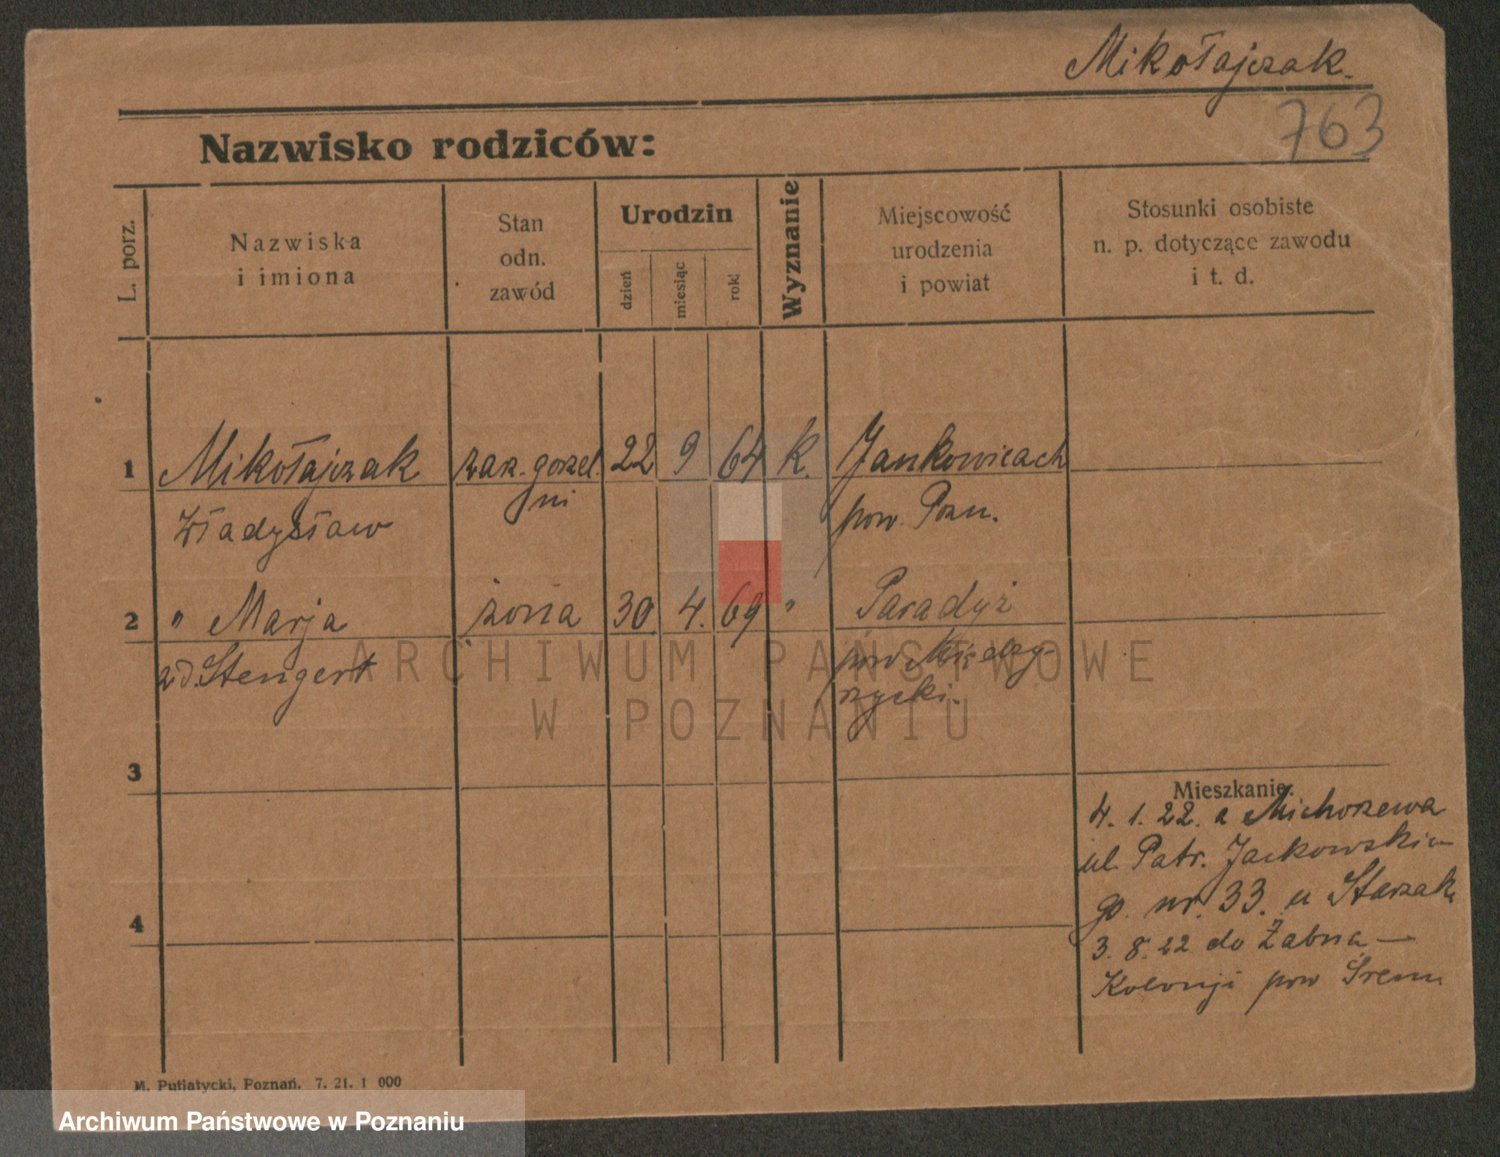 Mikołajczak.
763
Nazwisko rodziców:
L. porz.
Nazwiska
i imiona
Stan
odn.
zawód
Urodzin
dzień
miesiąc
rok
Wyznanie
Miejscowość
urodzenia
i powiat
Stosunki osobiste
n. p. dotyczące zawodu
i t. d.
1 Mikołajczak zarz. gorzel 22 9 64 k. Jankowicach
ni
Władysław pow. Pozn.
2 " Marja żona 30. 4. 69 " Paradyż
zd. Stengert pow. Między-
rzycki.
3
Mieszkanie:
4. 1. 22. z Michorzewa
ul. Patr. Jackowskie-
go. nr. 33. u Starzak
4
3. 8. 22 do Żabna-
Kolonji pow Śrem
M. Putiatycki, Poznań. 7. 21. 1 000
ARCHIWUM PAŃSTWOWE
W POZNANIU
Archiwum Państwowe w Poznaniu